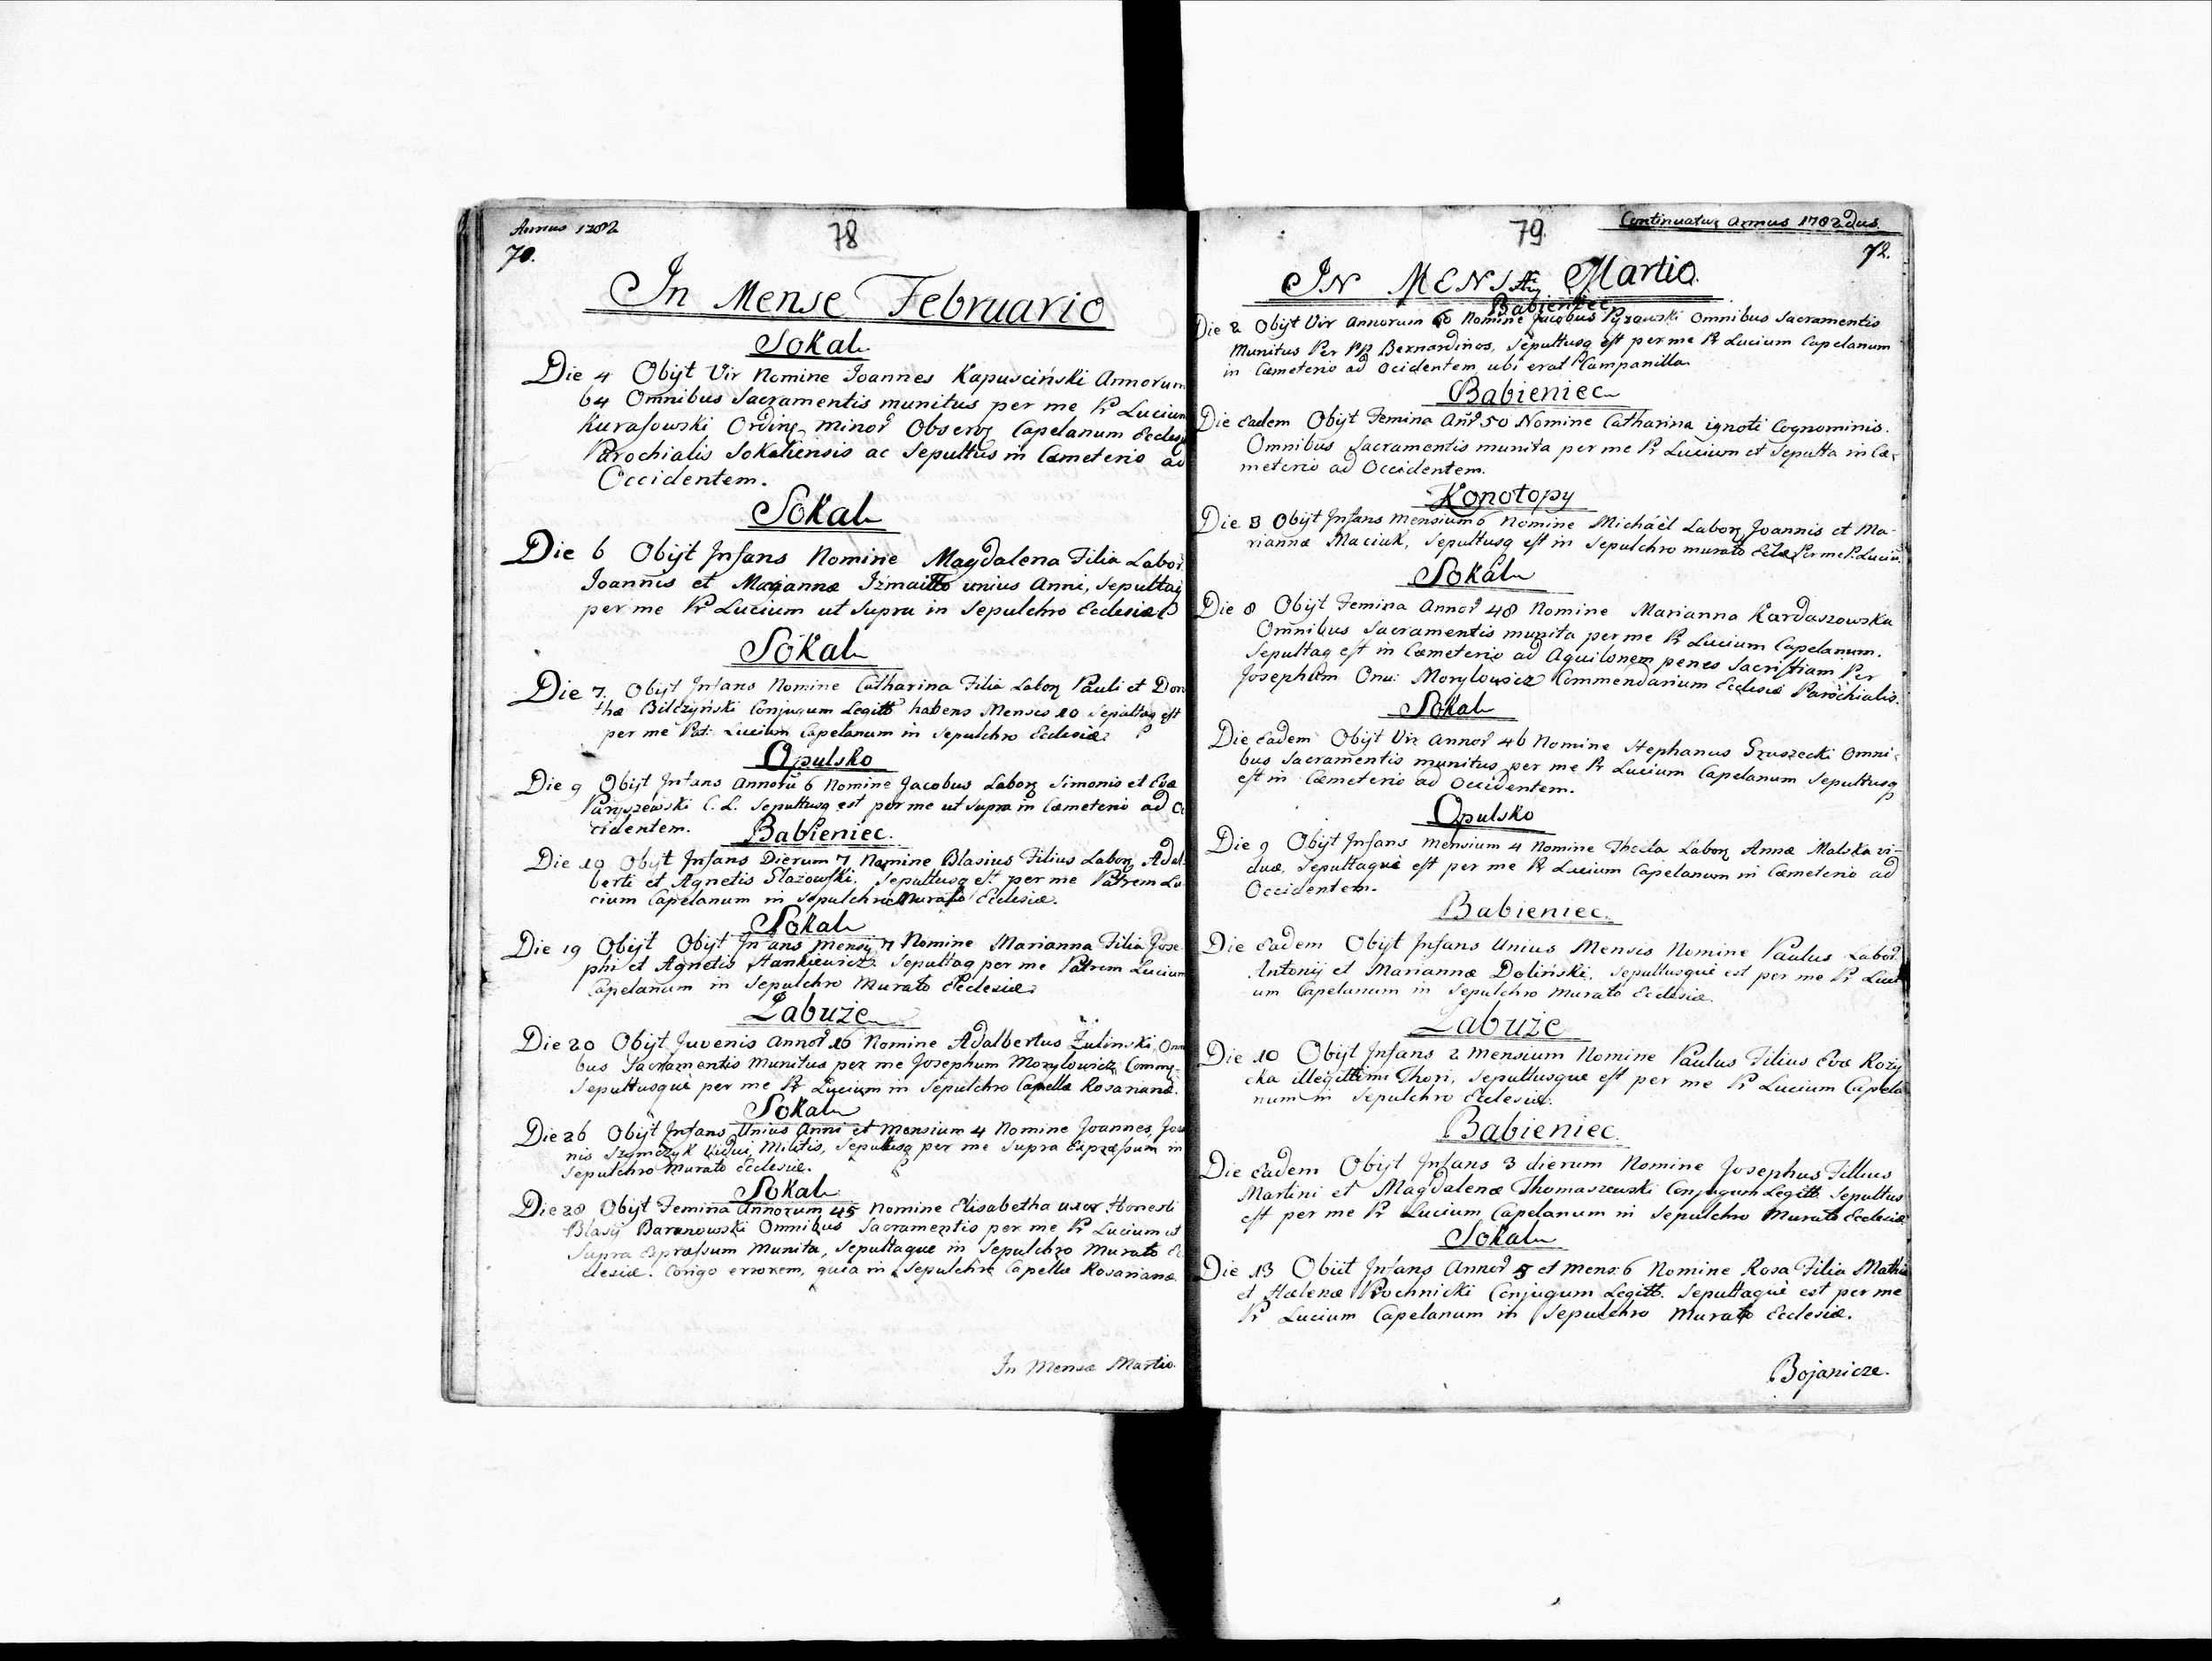 Annus 1782
78
70.
In Mense Februario
Sokal
Die 4 Obijt Vir Nomine Joannes Kapusciński Annorum
64 Omnibus Sacramentis munitus per me Pr Lucium
Kurasowski Ording Minor Observ Capelanum Eccles
Parochialis Sokaliensis ac Sepultus in Cæmeterio ad
Occidentem.
Sokal
Die 6 Obijt Infans Nomine Magdalena Filia Labor
Joannis et Mariannæ Izmaiłło unius Anni, Sepultaq
per me Pr Lucium ut Supra in Sepulchro Ecclesiæ
Sokal
Die 7. Obijt Infans Nomine Catharina Filia Labor Pauli et Doro
thæ Bilczyński Conjugum Legitt habens Menses 10 Sepultaq est
per me Pat: Lucium Capelanum in Sepulchro Ecclesiæ
Opulsko
Die 9 Obijt Infans Annorū 6 Nomine Jacobus Labor Simonis et Evæ
C. L. Sepultusq est per me ut Supra in Cæmeterio ad Oc
cidentem.
Babieniec.
Die 10 Obijt Infans Dierum 7 Nomine Blasius Filius Labor Adal
berti et Agnetis Słazowski. Sepultusq est per me Patrem Lu
cium Capelanum in Sepulchro Murato Ecclesiæ.
Sokal
Die 19 Obijt Obijt Infans Mensiū 7 Nomine Marianna Filia Jose
phi et Agnetis Stankiewicz. Sepultaq per me Patrem Lucium
Capelanum in Sepulchro Murato Ecclesiæ
Zabuże
Die 20 Obijt Juvenis Annor 16 Nomine Adalbertus Żulinski Omni
bus Sacramentis Munitus per me Josephum Morylowicz Comm
Sepultusquè per me Pr Lucium in Sepulchro Capellæ Rosarianæ.
Sokal
Die 26 Obijt Infans Unius Anni et Mensium 4 Nomine Joannes, Joa
nis Szymczyk Militis, Sepultusq per me Supra Expressum in
Sepulchro Murato Ecclesiæ.
Sokal
Die 28 Obijt Femina Annorum 45 Nomine Elisabetha uxor Honesti
Blasij Baranowski Omnibus Sacramentis per me Pr Lucium ut
Supra Expressum Munita, Sepultaque in Sepulchro Murato Ec
clesiæ. Corigo errorem, quia in Sepulchro Capellæ Rosarianæ
In Mense Martio.
79
Continuatur Annus 1782dus
72.
IN MENSE Martio.
Babieniec
Die 2 Obijt Vir Annorum 60 Nomine Jacobus Pyzowski Omnibus Sacramentis
Munitus Per PP Bernardinos, Sepultusq est per me Pr Lucium Capelanum
in Cæmeterio ad Ocidentem, ubi erat Campanilla.
Babieniec
Die Eadem Obijt Femina Annr 50 Nomine Catharina ignoti Cognominis.
Omnibus Sacramentis munita per me Pr Lucium et Sepulta in Cæ-
meterio ad Occidentem.
Konotopy
Die 8 Obijt Infans Mensium 6 Nomine Michaël Labor Joannis et Ma-
riannæ Maciuk, Sepultusq est in Sepulchro murato Eclæ Per me P. Lucium
Sokal
Die 8 Obijt Femina Annor 48 Nomine Marianna Kardaszowska
Omnibus Sacramentis munita per me Pr Lucium Capelanum.
Sepultaq est in Cæmeterio ad Aquilonem penes Sacristiam Per
Josephum Onu: Morylowicz Commendarium Ecclesiæ Parochialis.
Sokal
Die Eadem Obijt Vir Annor 46 Nomine Stephanus Gruszecki Omni-
bus Sacramentis munitus per me Pr Lucium Capelanum Sepultusq
est in Cæmeterio ad Occidentem.
Opulsko
Die 9 Obijt Infans Mensium 4 Nomine Thecla Labor Annæ Malska vi-
duæ, Sepultaquè est per me Pr Lucium Capelanum in Cæmeterio ad
Occidentem.
Babieniec.
Die Eadem Obijt Infans Unius Mensis Nomine Paulus Labor.
Antonij et Mariannæ Doliński, Sepultusquè est per me Pr Luci
um Capelanum in Sepulchro Murato Ecclesiæ.
Zabuże
Die 10 Obijt Infans 2 Mensium Nomine Paulus Filius Evæ Rozy
cka illegittimi Thori, Sepultusque est per me Pr Lucium Capela
num in Sepulchro Ecclesiæ.
Babieniec.
Die Eadem Obijt Infans 3 dierum Nomine Josephus Fillius
Martini et Magdalenæ Thomaszewski Conjugum Legitt Sepultus
est per me Pr Lucium Capelanum in Sepulchro Murato Ecclesiæ
Sokal
Die 13 Obiit Infans Annor 5 et Mens: 6 Nomine Rosa Filia Mathiæ
et Hælenæ Prochnicki Conjugum Legitt. Sepultaquè est per me
Pr Lucium Capelanum in Sepulchro Murato Ecclesiæ.
Bojanicze.